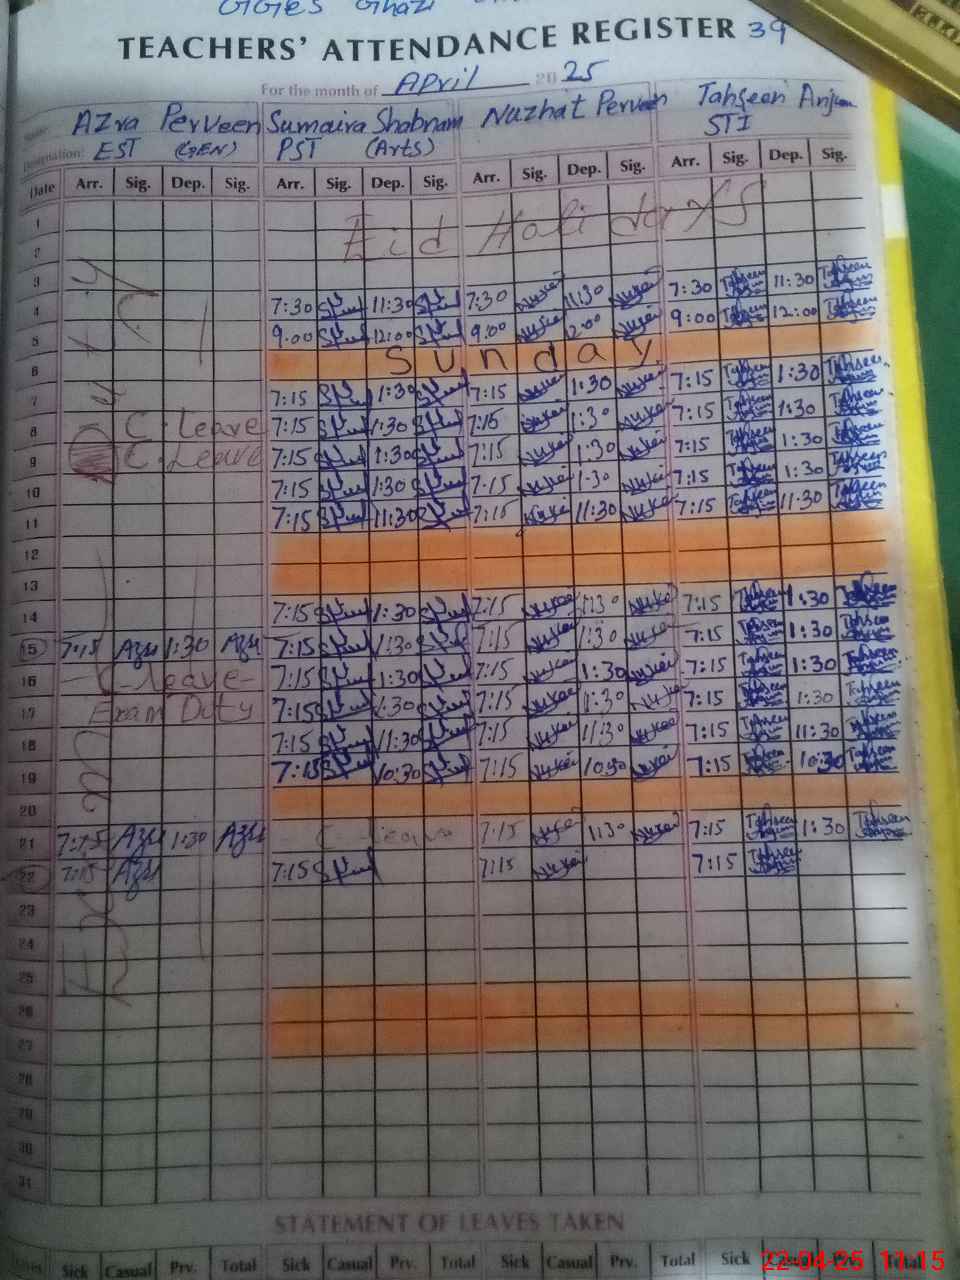 GGES Ghazi
TEACHERS' ATTENDANCE REGISTER 39
For the month of April 2025
Name: Azra Perveen Sumaira Shabnam Nuzhat Perveen Tahseen Anjum
Designation: EST (GEN) PST (Arts) STI
Date Arr. Sig. Dep. Sig. Arr. Sig. Dep. Sig. Arr. Sig. Dep. Sig. Arr. Sig. Dep. Sig.
1
2 Eid Holidays
3
4 7:30 11:30 7:30 11:30 7:30 Tahseen Anjum 11:30 Tahseen Anjum
5 9:00 12:00 9:00 12:00 9:00 Tahseen Anjum 12:00 Tahseen Anjum
6 Sunday
7 7:15 1:30 7:15 1:30 7:15 Tahseen Anjum 1:30 Tahseen Anjum
8 C. Leave 7:15 1:30 7:15 1:30 7:15 Tahseen Anjum 1:30 Tahseen Anjum
9 C. Leave 7:15 1:30 7:15 1:30 7:15 Tahseen Anjum 1:30 Tahseen Anjum
10 7:15 1:30 7:15 1:30 7:15 Tahseen Anjum 1:30 Tahseen Anjum
11 7:15 11:30 7:15 11:30 7:15 Tahseen Anjum 11:30 Tahseen Anjum
12
13
14 7:15 1:30 7:15 1:30 7:15 Tahseen Anjum 1:30 Tahseen Anjum
15 7:15 Azra 1:30 Azra 7:15 1:30 7:15 1:30 7:15 Tahseen Anjum 1:30 Tahseen Anjum
16 C-leave- 7:15 1:30 7:15 1:30 7:15 Tahseen Anjum 1:30 Tahseen Anjum
17 Exam Duty 7:15 1:30 7:15 1:30 7:15 Tahseen Anjum 1:30 Tahseen Anjum
18 7:15 11:30 7:15 11:30 7:15 Tahseen Anjum 11:30 Tahseen Anjum
19 7:15 10:30 7:15 10:30 7:15 Tahseen Anjum 10:30 Tahseen Anjum
20
21 7:15 Azra 1:30 Azra - C-leave 7:15 1:30 7:15 Tahseen Anjum 1:30 Tahseen Anjum
22 7:15 Azra 7:15 7:15 7:15 Tahseen Anjum
23
24
25
26
27
28
29
30
31
Exam Duty
STATEMENT OF LEAVES TAKEN
Sick Casual Prv. Total Sick Casual Prv. Total Sick Casual Prv. Total Sick Casual Prv. Total
22-04-25 11:15